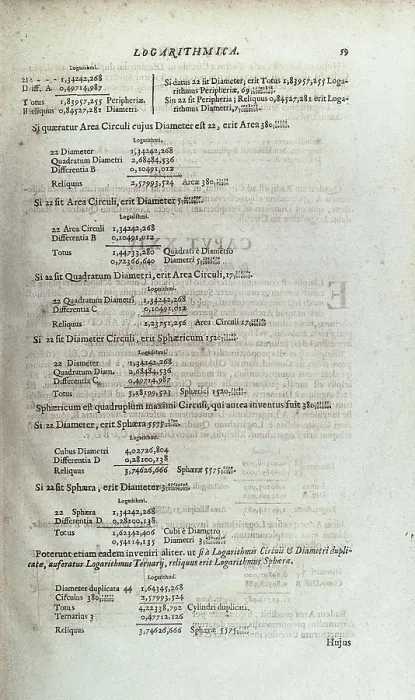 LOGARITHMICA. 59
Logarithmi.
22 - - - 1,34242,268
Diff. A 0,49714,987
Totus 1,83957,255 Peripheriæ.
Reliquus 0,84527,281 Diametri.
Si datus 22 sit Diameter, erit Totus 1,83957,255 Loga-
rithmus Peripheriæ, 69
Sin 22 sit Peripheria; Reliquus 0,84527,281 erit Loga-
rithmus Diametri, 7
Si quæratur Area Circuli cujus Diameter est 22, erit Area 380
Logarithmi.
22 Diameter 1,34242,268
Quadratum Diametri 2,68484,536
Differentia B 0,10491,012
Reliquus 2,57993,524 Areæ 380
Si 22 sit Area Circuli, erit Diameter 5
Logarithmi.
22 Area Circuli 1,34242,268
Differentia B 0,10491,012
Totus 1,44733,280 Quadrati è Diametro
0,72366,640 Diametri 5
Si 22 sit Quadratum Diametri, erit Area Circuli, 17
Logarithmi.
22 Quadratum Diametri 1,34242,268
Differentia C 0,10491,012
Reliquus 1,23751,256 Area Circuli 17
Si 22 sit Diameter Circuli, erit Sphæricum 1520
Logarithmi.
22 Diameter 1,34242,268
Quadratum Diam. 2,68484,536
Differentia C 0,49714,987
Totus 3,18199,523 Sphærici 1520
Sphæricum est quadruplum maximi Circuli, qui antea inventus fuit 380
Si 22 Diameter, erit Sphæra 5575
Logarithmi.
Cubus Diametri 4,02726,804
Differentia D 0,28100,138
Reliquus 3,74626,666 Sphæræ 5575
Si 22 sit Sphæra, erit Diameter 3
Logarithmi.
22 Sphæra 1,34242,268
Differentia D 0,28100,138
Totus 1,62342,406 Cubi è Diametro
0,54114,135 Diametri 3
Poterunt etiam eadem inveniri aliter. ut si è Logarithmis Circuli & Diametri dupli-
catæ, auferatur Logarithmus Ternarij, reliquus erit Logarithmus Sphæræ.
Logarithmi.
Diameter duplicata 44 1,64345,268
Circulus 380 2,57993,524
Totus 4,22338,792 Cylindri duplicati.
Ternarius 3 0,47712,126
Reliquus 3,74626,666 Sphæræ 5575
Hujus